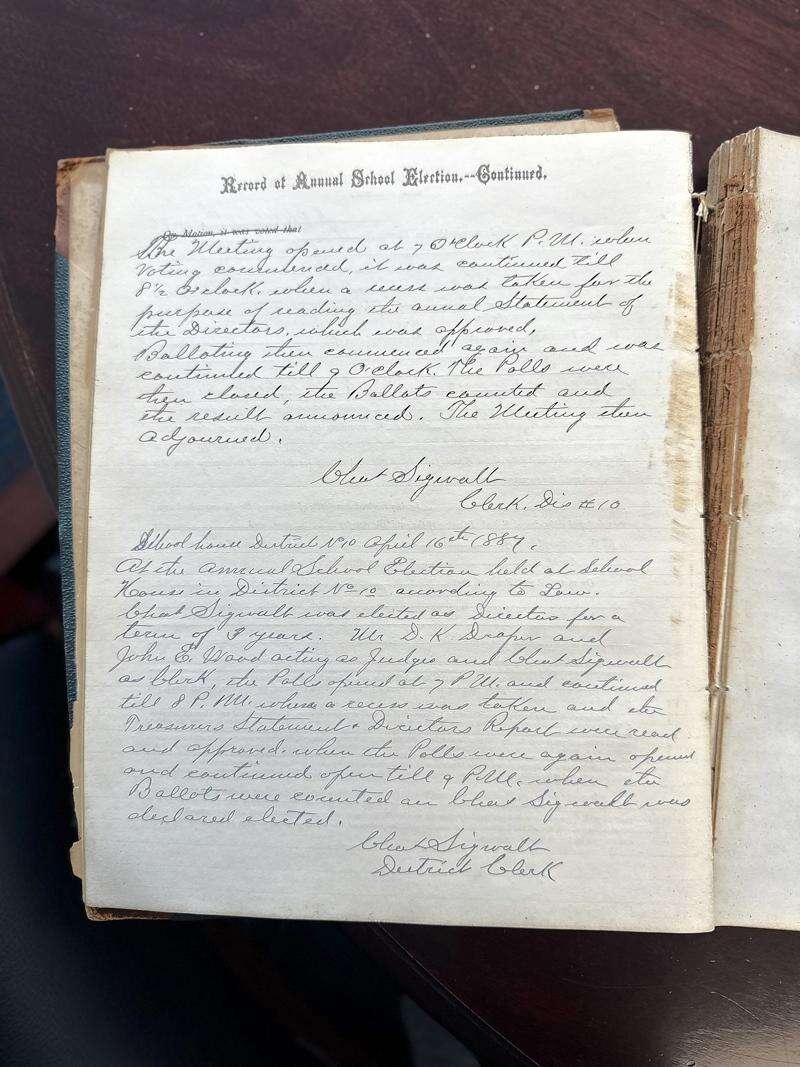 Record of Annual School Election.--Continued.
On Motion, it was voted that
The Meeting opened at 7 O'Clock P.M. when
Voting commenced, it was continued till
8½ O'clock. when a recess was taken for the
purpose of reading the anual Statement of
the Directors, which was approved,
Balloting then commenced again and was
continued till 9 O'Clock. The Polls were
then closed, the Ballots counted and
the result announced. The Meeting then
adjourned.
Chas Sigwalt
Clerk. Dis #10
School house District No 10 April 16th 1887.
At the annual School Election held at School
House in District No 10 according to Law.
Chas Sigwalt was elected as Director for a
term of 3 years. Mr D. K. Draper and
John E. Wood acting as Judges and Chas Sigwalt
as Clerk, the Polls opened at 7 P.M. and continued
till 8 P.M. when a recess was taken and the
Treasurers Statement & Directors Report were read
and approved. when the Polls were again opened
and continued open till 9 P.M. when the
Ballots were counted an Chas Sigwalt was
declared elected.
Chas Sigwalt
District Clerk